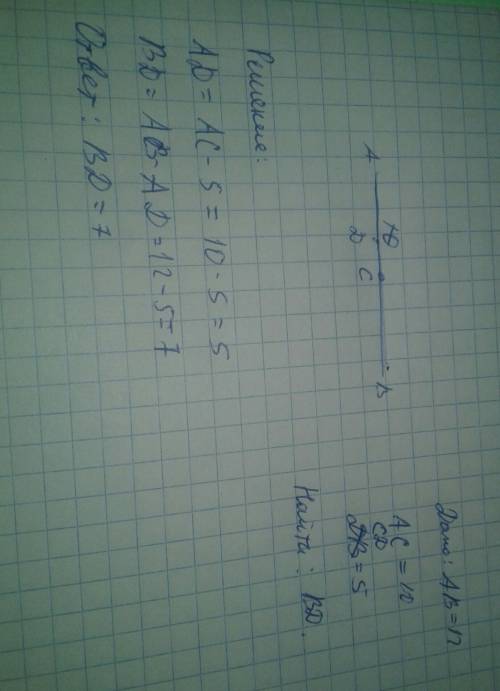 Дано: AB=12
AC = 10
CD = 5
Найти: BD.
A D C B
Решение:
AD = AC - 5 = 10 - 5 = 5
BD = AB - AD = 12 - 5 = 7
Ответ: BD = 7